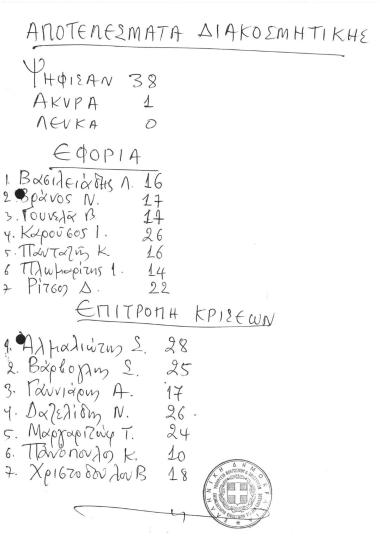 ΑΠΟΤΕΛΕΣΜΑΤΑ ΔΙΑΚΟΣΜΗΤΙΚΗΣ
ΨΗΦΙΣΑΝ 38
ΑΚΥΡΑ 1
ΛΕΥΚΑ 0
ΕΦΟΡΙΑ
1. Βασιλειάδης Λ. 16
2 Βράνος Ν. 17
3. Γουνελᾶ Β 14
4. Καρούσος Ι. 26
5. Πανταζῆς Κ 16
6 Πλωμαρίτης Ι. 14
7 Ρίτσος Δ. 22
ΕΠΙΤΡΟΠΗ ΚΡΙΣΕΩΝ
1. Αλμαλιώτης Σ. 28
2. Βάρβογλης Σ. 25
3. Γαννιάρης Α. 17
4. Δατζελίδης Ν. 26
5. Μαργαριτώφ Τ. 24
6. Πανόπουλος Κ. 10
7. Χριστοδούλου Β 18
ΕΛΛΗΝΙΚΗ ΔΗΜΟΚΡΑΤΙΑ